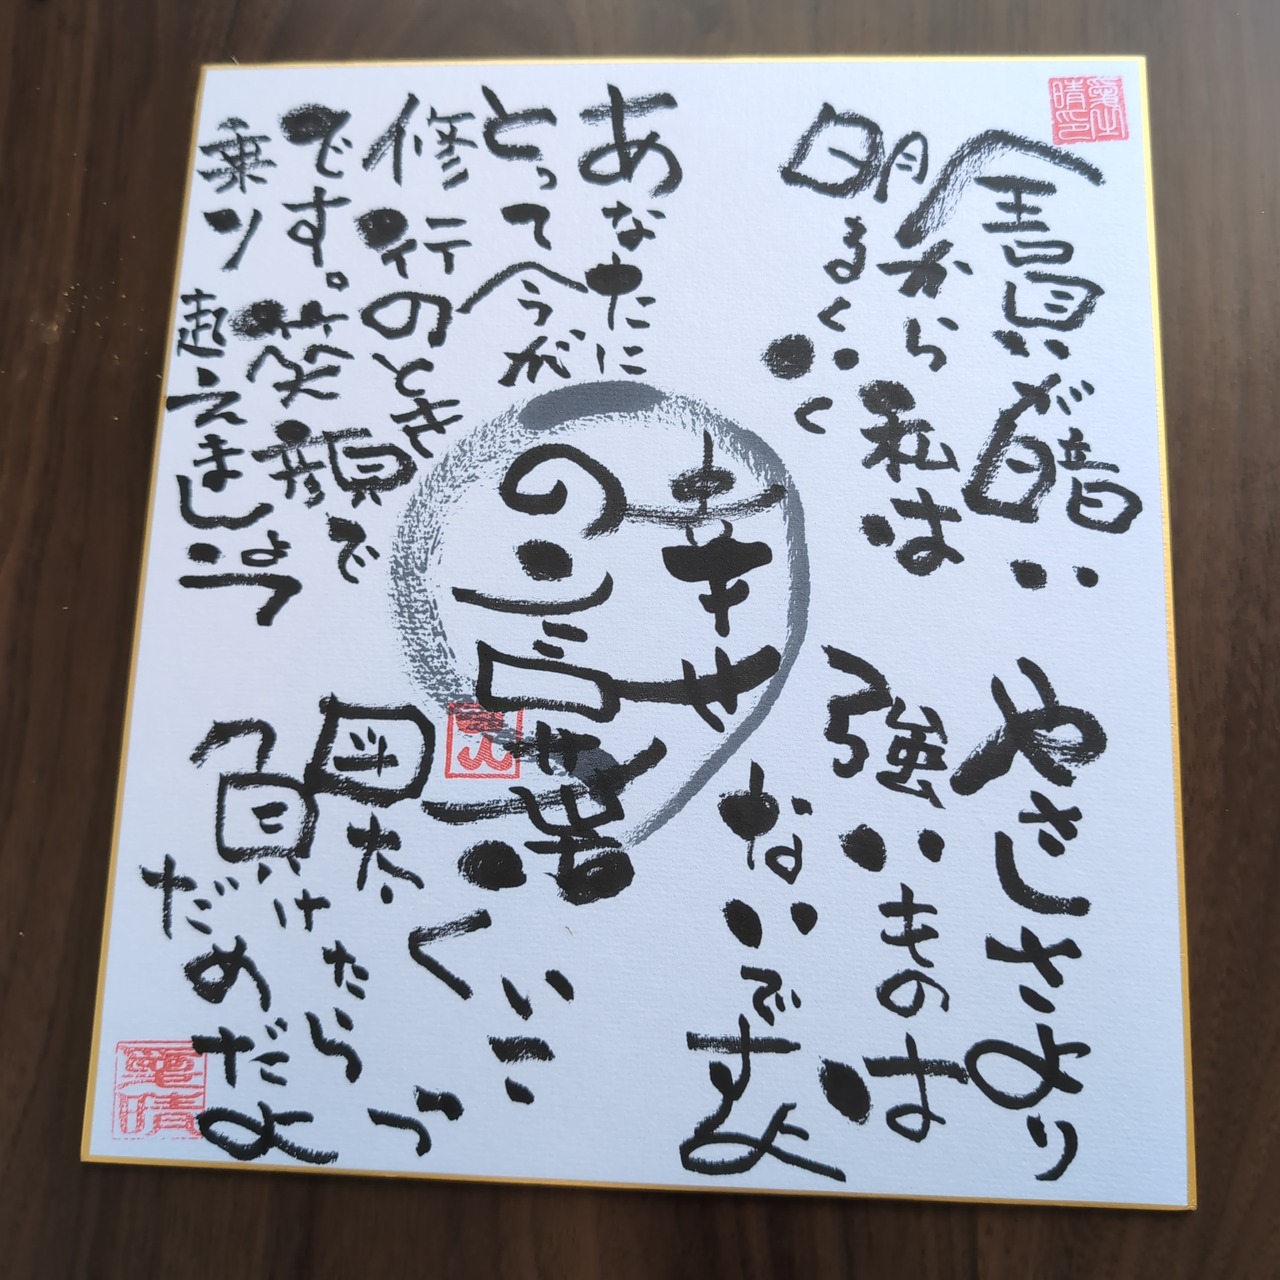 全員が暗い
から私は
明るくいく
やさしさより
強いものは
ないですよ
幸せ
の言葉
あなたに
とって今が
修行のとき
です。笑顔で
乗り越えましょう
図太くいこう
負けたら
だめだよ